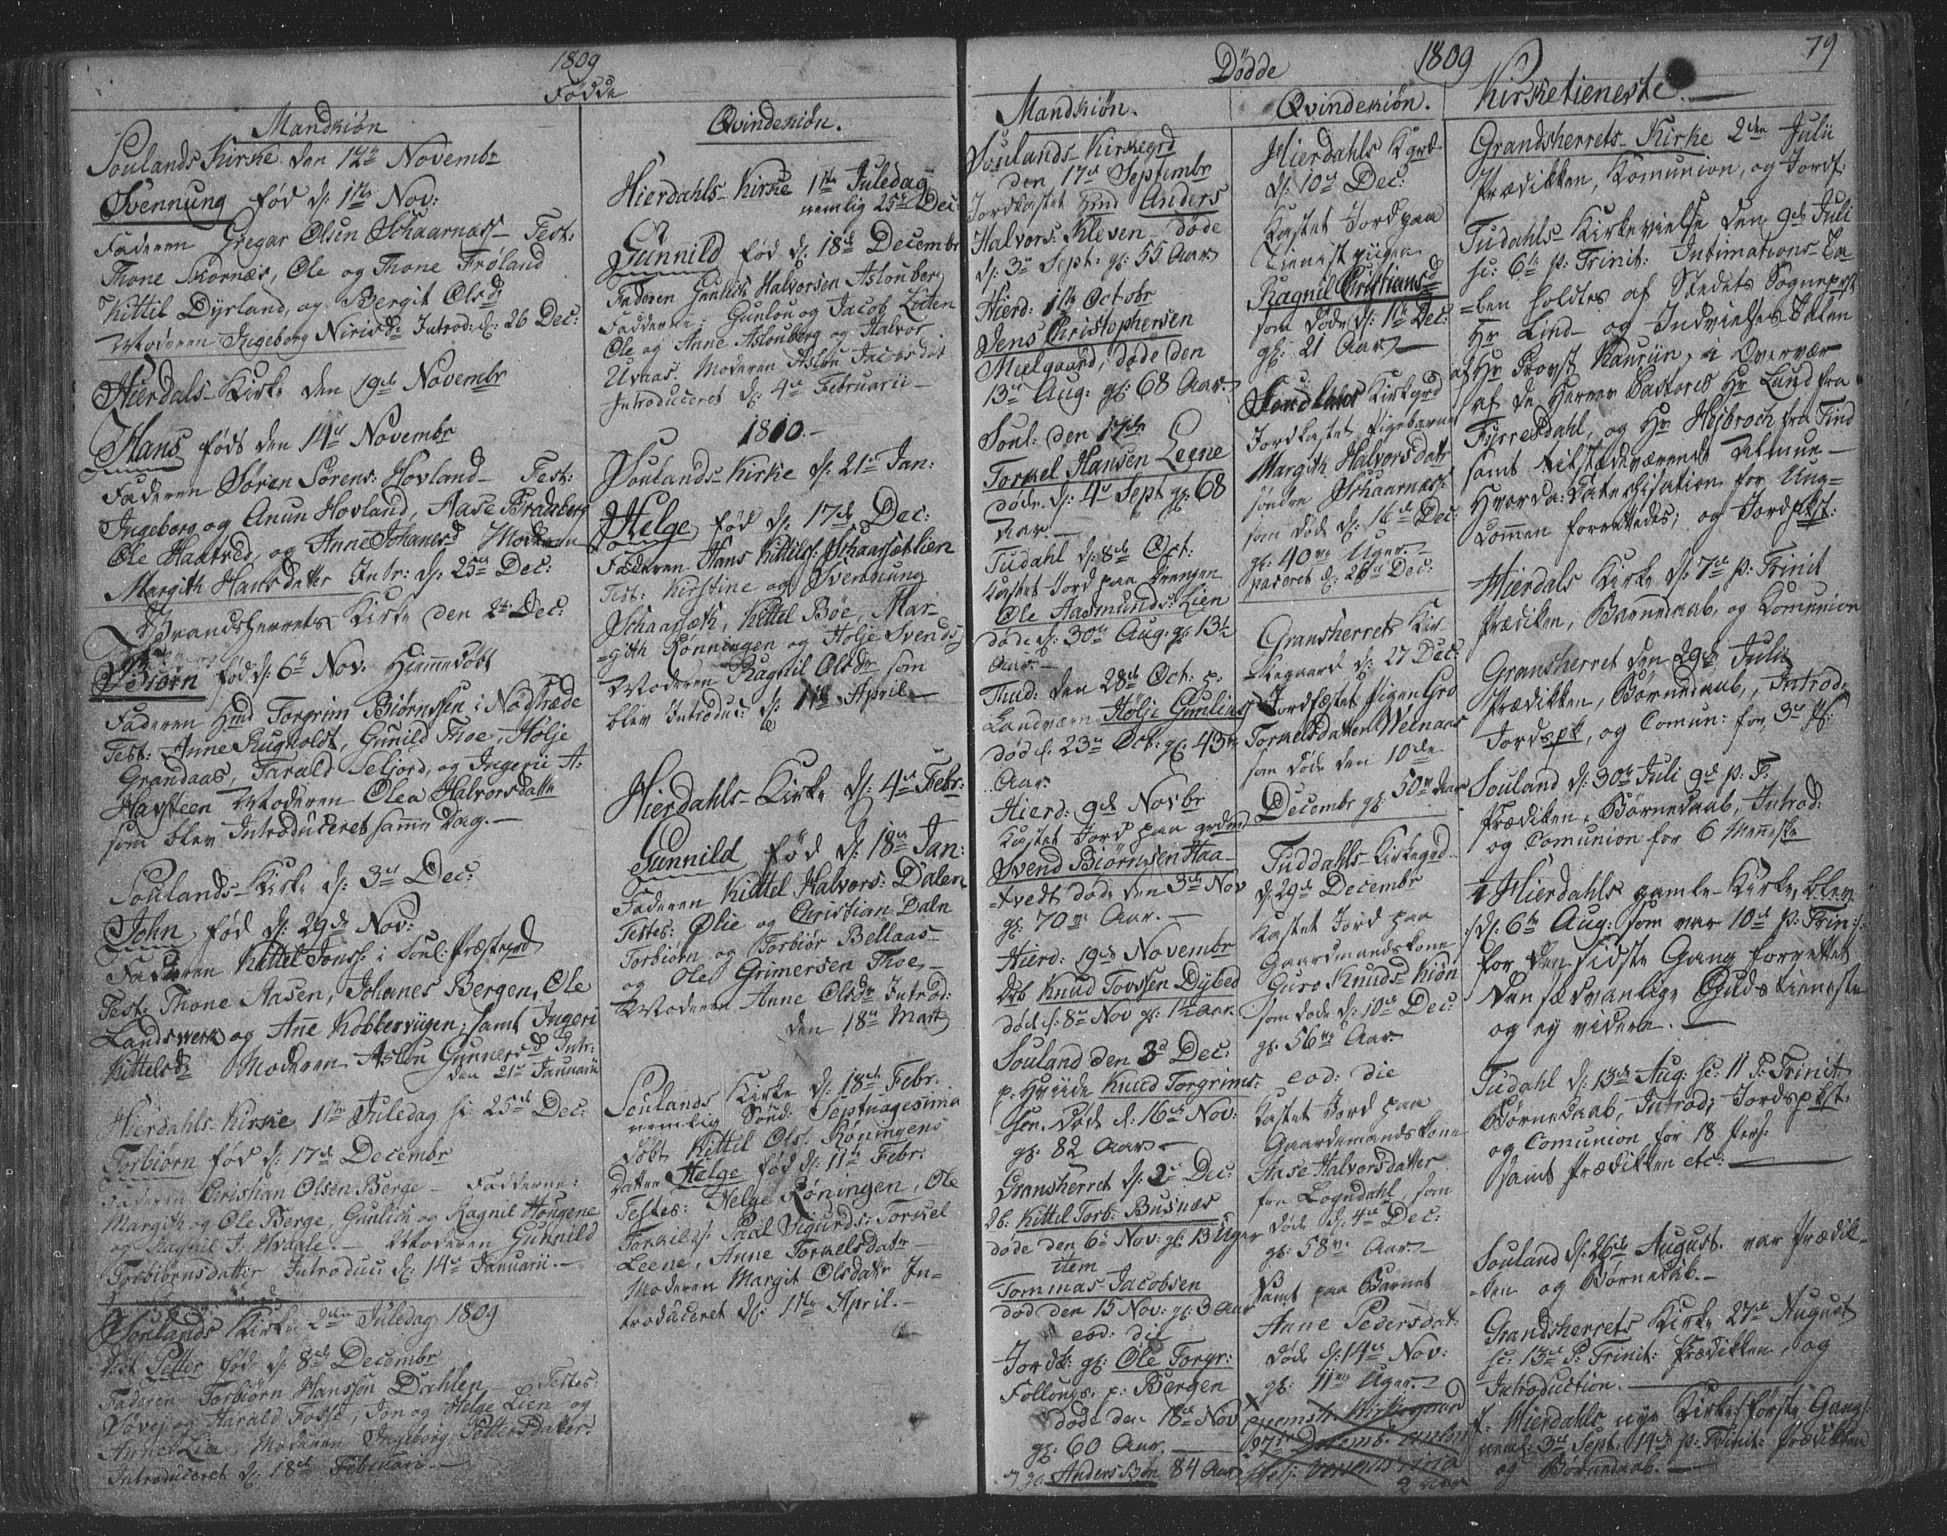 1809
Fødde
Mandkiön
Soulands Kirke den 12te Novembr
Svennung fød d: 1ste Nov:
Faderen Gregar Olsen Schaarnæs Test:
Thone Skornæs, Ole og Thone Frøland
Kittil Dyrland, og Bergit Olsd:
Moderen Ingeborg Nirisd: Introd: d: 26 Dec:
Hierdals Kirke den 19de Novembr
Hans født den 14de Novembr
Faderen Søren Sørens: Hovland Test:
Ingeborg og Anun Hovland, Aase Bradeberg
Ole Haatred, og Anne Johansd Moderen
Margith Hansdatter Intr: d: 25de Dec:
Grandsherrets Kirke den 2de Dec:
Biørn fød d: 6te Nov: Hiemmedøbt
Faderen Torgrim Biørnssen i Nødtræde
Test: Anne Rugholdt, Gunild Thoe, Hölje
Grandaas, Tarald Seljord, og Ingerii A:
Havsteen Moderen Olea Halvorsdatte
som blev Introduceret samme Dag.
Soulands Kirke d: 3de Dec:
John fød d: 29de Nov:
Faderen Kittel Jons: i Soul: Præstegrd
Test: Thone Aasen, Johanes Bergen, Ole
Landswerk og Anne Kobberviigen, samt Ingeri
Kittelsd: Moderen Aslou Gunnersd Intr:
den 21de Januarii
Hierdahls Kirke 1ste Juledag sc: 25de Dec:
Torbiørn fød d: 17de Decembr
Faderen Christian Olsen Berge Fadderne:
Margith og Ole Berge, Gunlich og Ragnil Haugene
og Ragnil J: Hvaale. Moderen Gunnild
Torbiørnsdatter Introduc: d: 14de Januarii.
Soulands Kirke 2den Juledag 1809
døbt Petter fød d: 8de Decembr
Faderen Torbiørn Hanssøn Dahlen Testes:
Døvej og Harald Fosse, Jon og Helge Lien og
Anne Lia, Moderen Ingeborg Pettersdatter.
Introduceret d: 18de Februarii.
Qvindekiön.
Hierdahls Kirke 1ste Juledag
nemlig 25de Dec
Gunnild fød d: 18de Decembr
Faderen Gunlich Halvorsen Aslouberg
Fadderne: Gunlou og Jacob Lien
Ole og Anne Aslouberg og Halvor
Uvaas. Moderen Aslou Jacobsdat
Introduceret d: 4de Februarii
1810.
Soulands Kirke d: 21de Jan:
Helge fød d: 17de Dec:
Faderen Hans Kittils: Schaarsetlien
Test: Kirstine og Svennung
Schaarsæth, Kittel Bøe, Mar-
gith Rønningen og Hölje Svends
Moderen Ragnil Olsdr som
blev Introduc: d: 1ste April
Hierdahls Kirke d: 4de Febr:
Gunnild fød d: 18de Jan:
Faderen Kittel Halvors: Dalen
Testes: Ølie og Christian Daln
Torbiørn og Torbiør Bellaas
og Ole Grimersen Thoe
Moderen Anne Olsdr Introd:
den 18de Marti
Soulands Kirke d: 18de Febr.
nemlig Sønd: Septuagesima
døbt Kittil Ols: Röningens
Datter Helge fød d: 11te Febr.
Testes: Helge Röningen, Ole
Torkilds: Paal Sigurds: Torkel
Leene, Anne Torkelsdatr
Moderen Margit Olsdatr In-
troduceret d: 1ste April.
Dødde 1809 79
Mandkiön.
Soulands Kirkegrd
den 17de Septembr
Jordkastet Anders
Halvors: Kleven døde
d: 3de Sept: gl: 55 Aar
Hierd: 1ste Octobr
Jens Christophersen
Meelgaard, døde den
13de Aug: gl: 68 Aar.
Soul: den
Torkel Hansen Leene
døde d: 4de Sept gl: 68
Aar.
Tudahl d: 8de Oct:
kastet Jord paa Drengen
Ole Aasmunds: Lien
døde d: 30te Aug: gl: 13½
Aar.
Tuud: den 28de Oct: p:
Landværn Hölje Gunlius
død d. 23de Oct: gl: 43
Aar.
Hierd: 9de Novbr
kastet Jord paa grdmd
Svend Biørnsen Haa-
tvedt døde den 3de Nov
gl: 70 Aar.
Hierd: 19de Novembr
Knud Tovssen Dybed
død d: 8de Nov gl: 1½ Aar.
Souland den 3d Dec:
p: Hviide Knud Torgrims:
søn. Døde d: 16de Nov:
gl: 82 Aar
Gransherret d: 2de Dec:
db: Kittil Torb: Busnæs
døde den 6te Nov: gl: 13 Uger
item
Tommas Jacobsen
død den 15 Nov: gl: 3 Aar
eod: die
Jordk: gl: Ole Torgr:
Follongs. p: Bergen
døde den 18de Nov
gl: 60 Aar.
Anders Bøn 84 Aar
Qvindekiön.
Hierdahls Kgrd
d: 10de Dec:
kastet Jord paa
Tienestpiigen
Ragnil Cristiansd
som døde d: 1ste Dec:
gl: 21 Aar
Soudlands Kirkgrd
Jordkastet Pigebarnet
Margith Halvorsdatr
sønden Schaarnæs:
som døde d: 16de Dec:
gl: 40 Uger.
passeret d: 26de Dec:
Gransherrets Kir
kegaard d: 27 Dec:
Jordfæstet Pigen Gro
Torkelsdatter Veenaas
som døde den 10de
Decembr gl: 50 Aar
Tuddahls Kirkegrd
d: 29de Decembr
kastet Jord paa
Gaardmandskone
Guro Knuds: Kiön
som døde d: 10de Dec:
gl: 56 Aar.
eod: die
kastet Jord paa
Gaardemandskone
Aase Halvorsdatter
fra Logndahl, som
døde d: 4de Dec:
gl: 58 Aar.
Samt paa Barnet
Anne Pedersdat:
døde d: 14de Nov:
gl: 11 Uger.
Kirketieneste
Grandsherrets Kirke 2den Julii
Prædikken, Komunion, og Jordf.
Tudahls Kirkevielse den 9de Juli
sc: 6te p: Trinit: Intimations-Ta-
len holdtes af Stedets Sogneprst
Hr Lind og Indvielses Talen
af Hr Provst Kaurin, i Overvær
af de Herrer Pastores Hr Lund fra
Fyrresdahl, og Hr Hejbroch fra Tind
samt Tilstædeværende Almue
Hvorda: Catechisation for Ung-
dommen forrettedes; og Jordpkst:
Hierdals Kirke d: 7de p: Trinit
Prædiken, Barnedaab, og Komunion
Gransherret den 29de Julii
Prædikken, Børnedaab, Introd:
Jordspk, og Comun: for 3 Ps:
Souland d: 30te Juli 9de p: T:
Prædiken, Børnedaab, Introd:
og Comunion for 6 Menneske
i Hierdahls gamle Kirke, blev
d: 6te Aug: som var 10de p: Trin:
for den sidste Gang forrettet
den sædvanlige Gudstieneste
og ey videre.
Tudahl d: 13de Aug: sc: 11 p: Trinit
Børnedaab, Introd; Jordspkst:
og Comunion for 18 Pers:
samt Prædikken etc:
Souland d: 26de August. var Prædik-
ken og Børnedåb.
Grandsherrets Kirke 27de August
sc: 13de p: Trinit: Prædikken, og
Introduction.
f. Hierdahls nye Kirke første Gang
neml: 3de Sept. 14de p: Trinit: Prædikken
og Børnedaab.